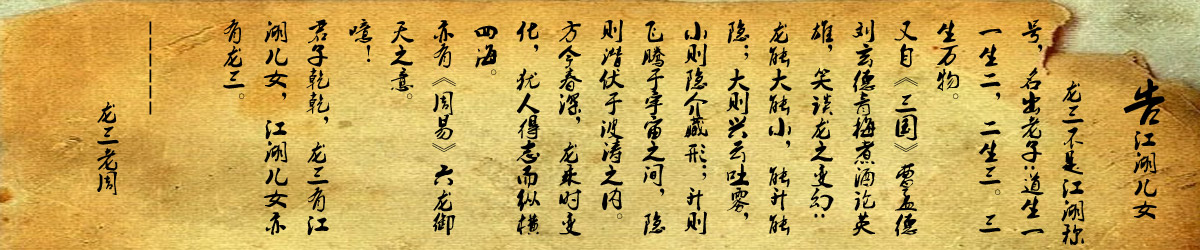 告江湖儿女
龙三不是江湖称
号，名出老子：道生一
一生二，二生三。三
生万物。
又自《三国》曹孟德
刘玄德青梅煮酒论英
雄，笑谈龙之变幻：
龙能大能小，能升能
隐；大则兴云吐雾，
小则隐介藏形；升则
飞腾于宇宙之间，隐
则潜伏于波涛之内。
方今春深，龙乘时变
化，犹人得志而纵横
四海。
亦有《周易》六龙御
天之意。
噫！
君子乾乾，龙三有江
湖儿女，江湖儿女亦
有龙三。
龙三老周